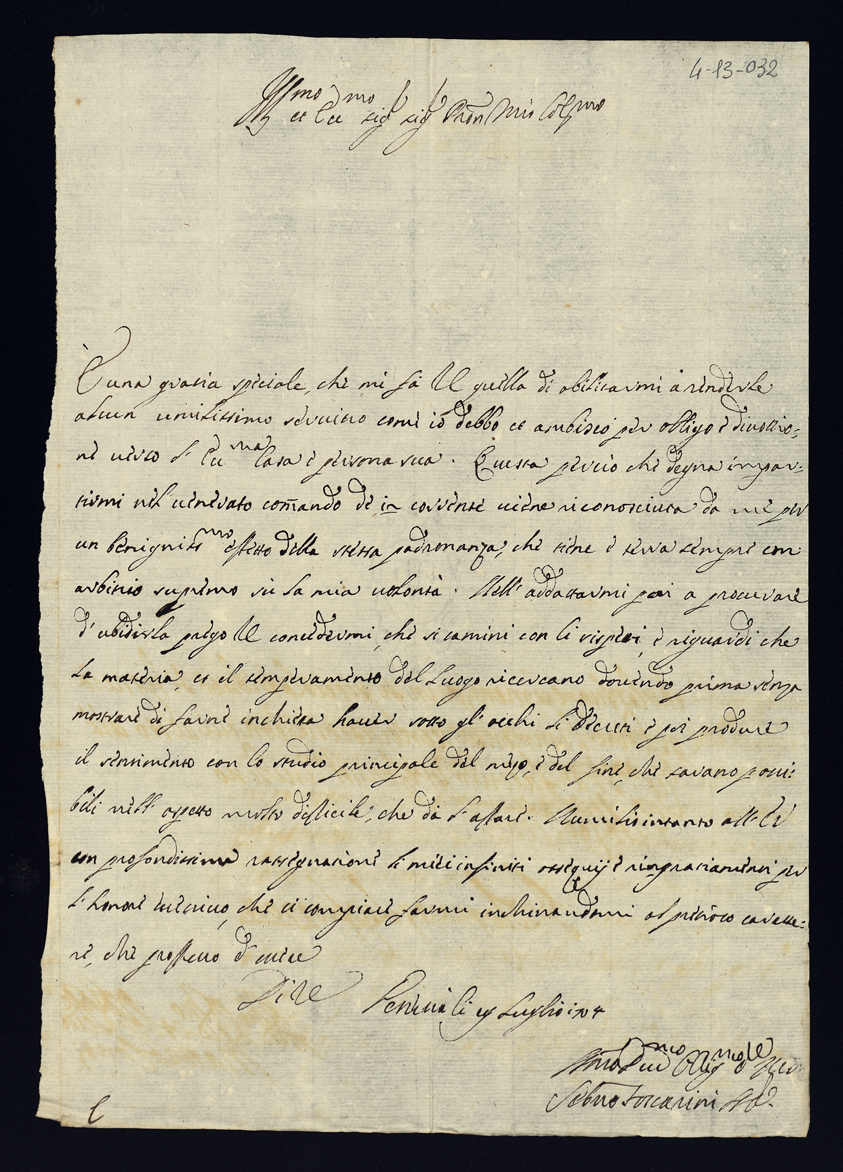 4-13-032
Ill.mo et Ecc.mo Sig.r Sig.r Pron Mio Col.mo
È una gratia speciale, che mi fà VE quella di obilitarmi à renderle
alcun umilissimo servitio come io debbo et ambisco per obligo è divotio:
nè verso l'Ecc.ma Casa è persona sua. Questa perciò che degna impar:
tirmi nel venerato comando dè in corrente viene riconosciuta da me per
un benigniss.mo effetto della stessa padronanza, che tiene è terrà sempre con
arbitrio supremo sù la mia volontà. Nell'addattarmi poi a procurare
d'ubidirla prego VE concedermi, che si camini con li rispeti, è riguardi che
la materia, et il temperamento del Luogo ricercano dovendo prima senza
mostrare di farne inchiesta haver sotto gl'occhi li decreti è poi produrre
il sentimento con lo studio principale del mezo, è del fine, che sarano possi:
bili nell'aspetto molto dificile, che dà l'affare. Humilio intanto all'EV
con profondissima rassegnatione li miei infiniti ossequij è ringratiamenti per
l'honore che si compiace farmi inchinandomi al carattere:
re, che professo d'essere
Di VE
li 19 Luglio 1704
Devot.mo Oblig.mo
Foscarini